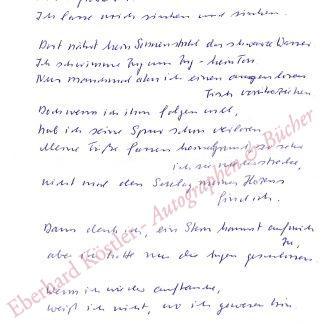 Ich lasse mich sinken und sinken.
Dort nährt kein Sonnenstrahl das schwarze Wasser
Ich schwimme Zug um Zug - kein Ton.
Nur manchmal ich einen
Fisch vorbeiziehen
Doch wenn ich ihm folgen will,
hab ich seine Spur schon verloren.
Meine Füße fassen so sehr
ich sie
nicht mal den Schlag meines Herzens
fühl ich.
Dann denk ich, ein Stern kommt auf mich
zu,
aber ich hatte nur die Augen geschlossen.
Wenn ich wieder auftauche,
weiß ich nicht, wo ich gewesen bin.
Eberhard Köstler - Autographen & Bücher